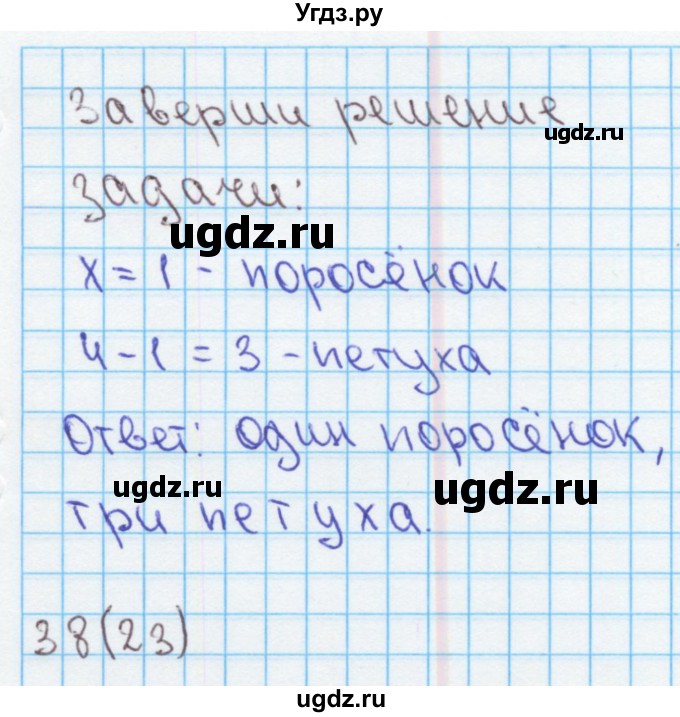 Угдз.ру
Заверши решение
ugdz.ru
задачи:
ugdz.ru
х = 1 - поросёнок
4 - 1 = 3 - петуха
Ответ: один поросёнок,
ugdz.ru
ugdz.ru
три петуха.
38(23)
ugdz.ru